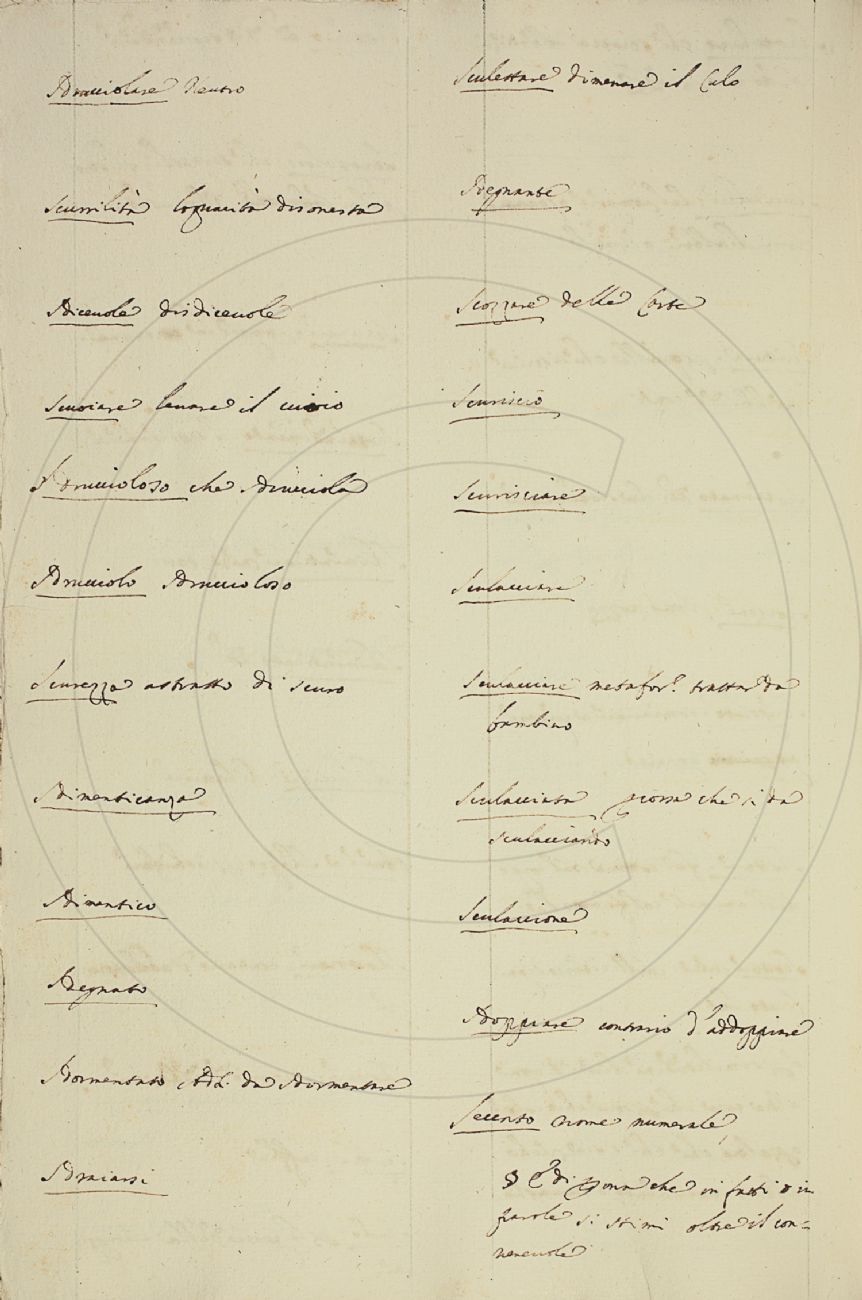 Sdrucciolare Neutro
Scurrilità loquacità disonesta
Sdicevole disdicevole
Scuoiare levare il cuoio
Sdruccioloso che sdrucciola
Sdrucciolo Sdruccioloso
Scurezza astratto di scuro
Sdimenticanza
Sdimentico
Sdegnato
Sdormentato Add. da Sdormentare
Sdraiarsi
Sculettare dimenare il Culo
Sdegnante
Scozzare delle Carte
Scuriscio
Scurisciare
Sculacciare
Sculacciare metafor.e trattar da
bambino
Sculacciata percossa che si da
sculacciando
Sculaccione
Sdoppiare contrario d'addoppiare
Secento nome numerale
di che in fatti o in
parole si stimi oltre il con=
venevole